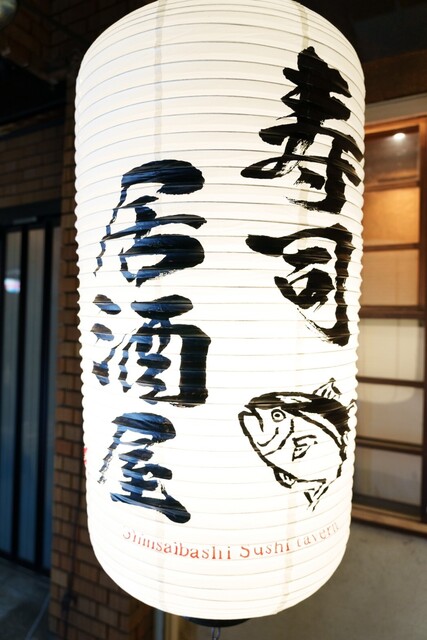 寿司
居酒屋
Shinsaibashi Sushi tavern